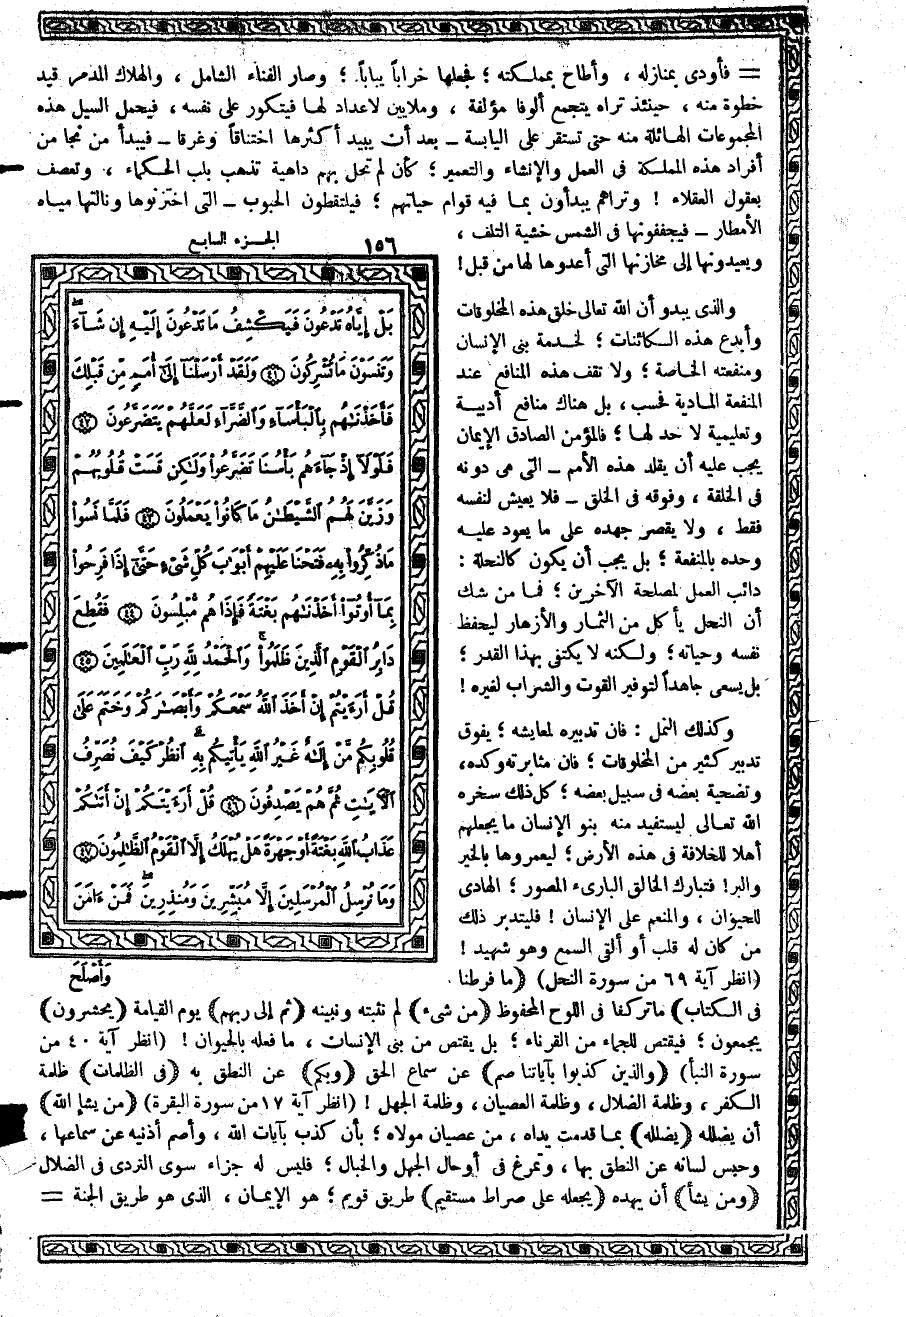 = فأودى بمنازله ، وأطاح بمملكته ؛ فجعلها خراباً يباباً . ؛ وصار الفناء الشامل ، والهلاك المدمر قيد
خطوة منه ، حينئذ تراه يتجمع ألوفا مؤلفة ، وملايين لاعداد لها فيتكور على نفسه ، فيحمل السيل هذه
المجموعات الهائلة منه حتى تستقر على اليابسة – بعد أن يبيد أكثرها اختناقاً وغرقا – فيبدأ من نجا من
أفراد هذه المملكة فى العمل والإنشاء والتعمير ؛ كأن لم تحل بهم داهية تذهب بلب الحكماء ، وتعصف
بعقول العقلاء ! وتراهم يبدأون بما فيه قوام حياتهم ؛ فيلتقطون الحبوب – التى اختزنوها ونالتها مياه
الأمطار – فيجففونها فى الشمس خشية التلف ،
ويعيدونها إلى مخازنها التى أعدوها لها من قبل !
والذى يبدو أن الله تعالى خلق هذه المخلوقات
وأبدع هذه الكائنات ؛ لخدمة بنى الإنسان
ومنفعته الخاصة ؛ ولا تقف هذه المنافع عند
المنفعة المادية فحسب ، بل هناك منافع أدبية
وتعليمية لا حد لها ؛ فالمؤمن الصادق الإيمان
يجب عليه أن يقلد هذه الأمم – التى هى دونه
فى الخلقة ، وفوقه فى الخلق – فلا يعيش لنفسه
فقط ، ولا يقصر جهده على ما يعود عليه
وحده بالمنفعة ؛ بل يجب أن يكون كالنحلة :
دائب العمل لمصلحة الآخرين ؛ فما من شك
أن النحل يأكل من الثمار والأزهار ليحفظ
نفسه وحياته ؛ ولكنه لا يكتفى بهذا القدر ؛
بل يسعى جاهداً لتوفير القوت والشراب لغيره !
وكذلك النمل : فان تدبيره لمعايشه ؛ يفوق
تدبير كثير من المخلوقات ؛ فان مثابرته وكده ،
وتضحية بعضه فى سبيل بعضه ؛ كل ذلك سخره
الله تعالى ليستفيد منه بنو الإنسان ما يجعلهم
أهلا للخلافة فى هذه الأرض ؛ ليعمروها بالخير
والبر ! فتبارك الخالق البارىء المصور ؛ الهادى
للحيوان ، والمنعم على الإنسان ! فليتدبر ذلك
من كان له قلب أو ألقى السمع وهو شهيد !
(انظر آية ٦٩ من سورة النحل) (ما فرطنا
١٥٦ الجزء السابع
بَلْ إِيَّاهُ تَدْعُونَ فَيَكْشِفُ مَا تَدْعُونَ إِلَيْهِ إِن شَآءَ
وَتَنسَوْنَ مَا تُشْرِكُونَ ﴿٤١﴾ وَلَقَدْ أَرْسَلْنَآ إِلَىٰٓ أُمَمٍ مِّن قَبْلِكَ
فَأَخَذْنَٰهُم بِالْبَأْسَآءِ وَالضَّرَّآءِ لَعَلَّهُمْ يَتَضَرَّعُونَ ﴿٤٢﴾
فَلَوْلَآ إِذْ جَآءَهُم بَأْسُنَا تَضَرَّعُوا۟ وَلَٰكِن قَسَتْ قُلُوبُهُمْ
وَزَيَّنَ لَهُمُ الشَّيْطَٰنُ مَا كَانُوا۟ يَعْمَلُونَ ﴿٤٣﴾ فَلَمَّا نَسُوا۟
مَا ذُكِّرُوا۟ بِهِۦ فَتَحْنَا عَلَيْهِمْ أَبْوَٰبَ كُلِّ شَىْءٍ حَتَّىٰٓ إِذَا فَرِحُوا۟
بِمَآ أُوتُوٓا۟ أَخَذْنَٰهُم بَغْتَةً فَإِذَا هُم مُّبْلِسُونَ ﴿٤٤﴾ فَقُطِعَ
دَابِرُ الْقَوْمِ الَّذِينَ ظَلَمُوا۟ وَالْحَمْدُ لِلَّهِ رَبِّ الْعَٰلَمِينَ ﴿٤٥﴾
قُلْ أَرَءَيْتُمْ إِنْ أَخَذَ اللَّهُ سَمْعَكُمْ وَأَبْصَٰرَكُمْ وَخَتَمَ عَلَىٰ
قُلُوبِكُم مَّنْ إِلَٰهٌ غَيْرُ اللَّهِ يَأْتِيكُم بِهِ انظُرْ كَيْفَ نُصَرِّفُ
الْءَايَٰتِ ثُمَّ هُمْ يَصْدِفُونَ ﴿٤٦﴾ قُلْ أَرَءَيْتَكُمْ إِنْ أَتَىٰكُمْ
عَذَابُ اللَّهِ بَغْتَةً أَوْ جَهْرَةً هَلْ يُهْلَكُ إِلَّا الْقَوْمُ الظَّٰلِمُونَ ﴿٤٧﴾
وَمَا نُرْسِلُ الْمُرْسَلِينَ إِلَّا مُبَشِّرِينَ وَمُنذِرِينَ فَمَنْ ءَامَنَ
وَأَصْلَحَ
فى الكتاب) ما تركنا فى اللوح المحفوظ (من شىء) لم نثبته ونبينه (ثم إلى ربهم) يوم القيامة (يحشرون)
يجمعون ؛ فيقتص للجماء من القرناء ؛ بل يقتص من بنى الإنسان ، ما فعله بالحيوان ! (انظر آية ٤٠ من
سورة النبأ) (والذين كذبوا بآياتنا صم) عن سماع الحق (وبكم) عن النطق به (فى الظلمات) ظلمة
الكفر ، وظلمة الضلال ، وظلمة العصيان ، وظلمة الجهل ! (انظر آية ١٧ من سورة البقرة) (من يشإ الله)
أن يضلله (يضلله) بما قدمت يداه ، من عصيان مولاه ؛ بأن كذب بآيات الله ، وأصم أذنيه عن سماعها ،
وحبس لسانه عن النطق بها ، وتمرغ فى أوحال الجهل والخبال ؛ فليس له جزاء سوى التردى فى الضلال
(ومن يشأ) أن يهده (يجعله على صراط مستقيم) طريق قويم ؛ هو الإيمان ، الذى هو طريق الجنة =